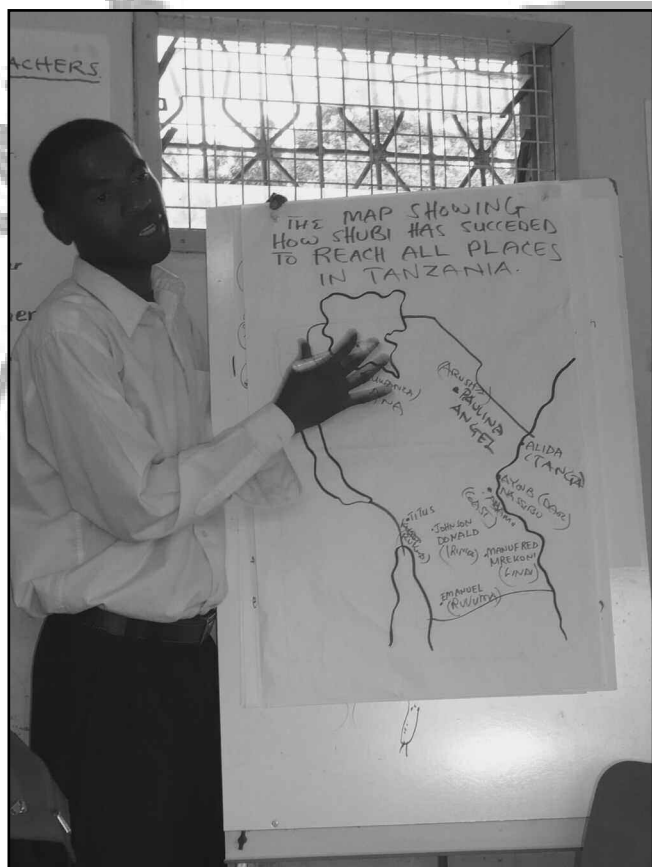 ACHERS
THE MAP SHOWING
HOW SHUBI HAS SUCCEDED
TO REACH ALL PLACES
IN TANZANIA.
(ARUSHA)
PAULINA
ANGEL
ALIDA
(TANGA
AYOUB (DAR)
NASSORO
(COAST)
TITUS
JOHNSON
DONALD
MANUFRED
MREKONI
(LINDI)
EMANUEL
(RUVUMA)